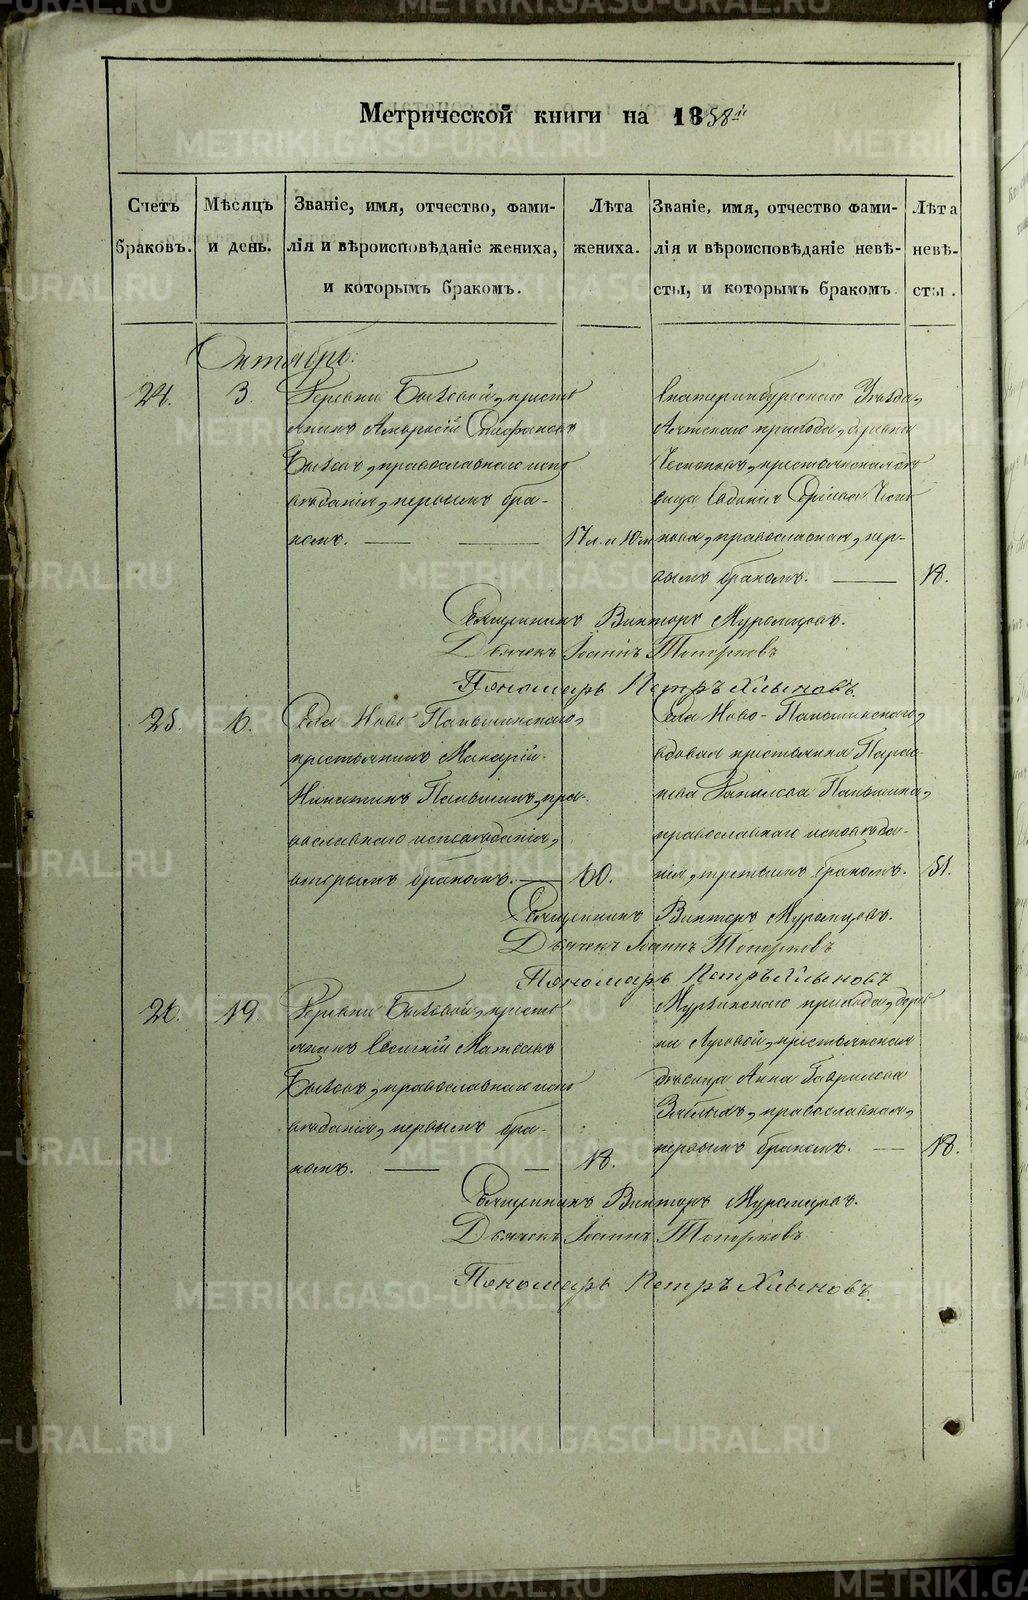 Метрической книги на 1858й
Счетъ браковъ.
Мѣсяцъ и день.
Званіе, имя, отчество, фами-
лія и вѣроисповѣданіе жениха,
и которымъ бракомъ.
Лѣта жениха.
Званіе, имя, отчество фами-
лія и вѣроисповѣданіе невѣ-
сты, и которымъ бракомъ
Лѣта невѣ-
сты.
Октябрь.
24.
3.
Деревни Быковой, кресть
янинъ Амвросій Стефановъ
Быковъ, православнаго испо
вѣданія, первымъ бра-
комъ.
17 л. и 10 м
Екатеринбургскаго Уѣзда,
прихода, деревни
крестьянская дѣ
вица
нова, православная, пер-
вымъ бракомъ.
18.
Священникъ Викторъ Муромцовъ.
Дьячекъ Іоаннъ Топорковъ
Пономарь Петръ Хлыновъ.
25.
6.
Села Ново-Паньшинскаго,
крестьянинъ Макарій
Никитинъ Паньшинъ, пра-
вославнаго исповѣданія,
вторымъ бракомъ.
60.
Села Ново-Паньшинскаго,
вдовая крестьянка Парас
кева Данилова Паньшина,
православнаго исповѣда-
нія, третьимъ бракомъ.
51.
Священникъ Викторъ Муромцовъ.
Дьячекъ Іоаннъ Топорковъ
Пономарь Петръ Хлыновъ
26.
19.
Деревни Быковой, кресть
янинъ Евсигній Матвѣевъ
Быковъ, православнаго испо
вѣданія, первымъ бра-
комъ.
18.
Мурзинскаго прихода, дерев
ни Луговой, крестьянская
дѣвица Анна Гаврилова
православная,
первымъ бракомъ.
18.
Священникъ Викторъ Муромцовъ.
Дьячекъ Іоаннъ Топорковъ
Пономарь Петръ Хлыновъ.
METRIKI.GASO-URAL.RU